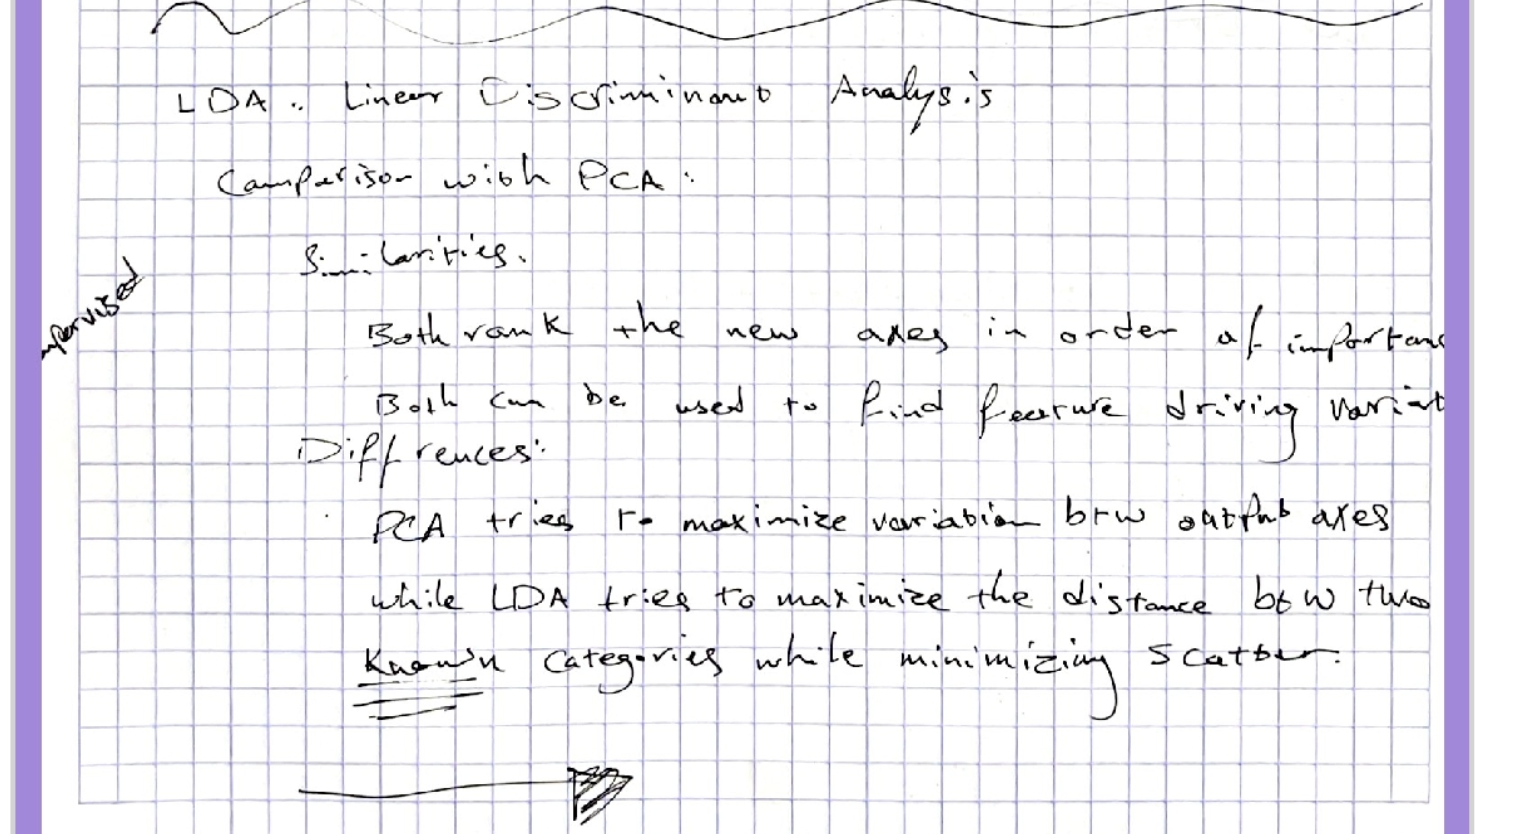 LDA: Linear Discriminant Analysis
Comparison with PCA:
Similarities.
pervised
Both rank the new axes in order of importanc
Both can be used to find feature driving variat
Diffrences:
PCA tries to maximize variation btw output axes
while LDA tries to maximize the distance btw two
Known categories while minimizing scatter.